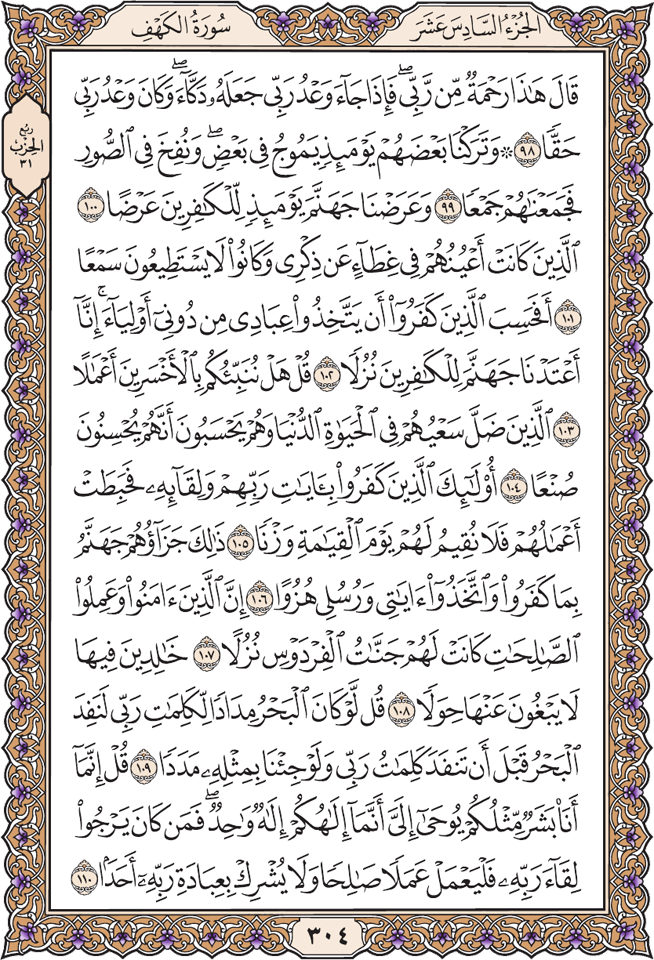 الجُزْءُ السَّادِسَ عَشَرَ
سُورَةُ الكَهْفِ
رُبْعُ
الحِزْبِ
٣١
قَالَ هَٰذَا رَحْمَةٌ مِّن رَّبِّي ۖ فَإِذَا جَاءَ وَعْدُ رَبِّي جَعَلَهُۥ دَكَّاءَ ۖ وَكَانَ وَعْدُ رَبِّي
حَقًّا ٩٨ ۞ وَتَرَكْنَا بَعْضَهُمْ يَوْمَئِذٍ يَمُوجُ فِي بَعْضٍ ۖ وَنُفِخَ فِي ٱلصُّورِ
فَجَمَعْنَٰهُمْ جَمْعًا ٩٩ وَعَرَضْنَا جَهَنَّمَ يَوْمَئِذٍ لِّلْكَٰفِرِينَ عَرْضًا ١٠٠
ٱلَّذِينَ كَانَتْ أَعْيُنُهُمْ فِي غِطَاءٍ عَن ذِكْرِي وَكَانُوا۟ لَا يَسْتَطِيعُونَ سَمْعًا
١٠١ أَفَحَسِبَ ٱلَّذِينَ كَفَرُوٓا۟ أَن يَتَّخِذُوا۟ عِبَادِي مِن دُونِيٓ أَوْلِيَاءَ ۚ إِنَّآ
أَعْتَدْنَا جَهَنَّمَ لِلْكَٰفِرِينَ نُزُلًا ١٠٢ قُلْ هَلْ نُنَبِّئُكُم بِٱلْأَخْسَرِينَ أَعْمَٰلًا
١٠٣ ٱلَّذِينَ ضَلَّ سَعْيُهُمْ فِي ٱلْحَيَوٰةِ ٱلدُّنْيَا وَهُمْ يَحْسَبُونَ أَنَّهُمْ يُحْسِنُونَ
صُنْعًا ١٠٤ أُو۟لَٰٓئِكَ ٱلَّذِينَ كَفَرُوا۟ بِـَٔايَٰتِ رَبِّهِمْ وَلِقَائِهِۦ فَحَبِطَتْ
أَعْمَٰلُهُمْ فَلَا نُقِيمُ لَهُمْ يَوْمَ ٱلْقِيَٰمَةِ وَزْنًا ١٠٥ ذَٰلِكَ جَزَآؤُهُمْ جَهَنَّمُ
بِمَا كَفَرُوا۟ وَٱتَّخَذُوٓا۟ ءَايَٰتِي وَرُسُلِي هُزُوًا ١٠٦ إِنَّ ٱلَّذِينَ ءَامَنُوا۟ وَعَمِلُوا۟
ٱلصَّٰلِحَٰتِ كَانَتْ لَهُمْ جَنَّٰتُ ٱلْفِرْدَوْسِ نُزُلًا ١٠٧ خَٰلِدِينَ فِيهَا
لَا يَبْغُونَ عَنْهَا حِوَلًا ١٠٨ قُل لَّوْ كَانَ ٱلْبَحْرُ مِدَادًا لِّكَلِمَٰتِ رَبِّي لَنَفِدَ
ٱلْبَحْرُ قَبْلَ أَن تَنفَدَ كَلِمَٰتُ رَبِّي وَلَوْ جِئْنَا بِمِثْلِهِۦ مَدَدًا ١٠٩ قُلْ إِنَّمَآ
أَنَا۠ بَشَرٌ مِّثْلُكُمْ يُوحَىٰٓ إِلَيَّ أَنَّمَآ إِلَٰهُكُمْ إِلَٰهٌ وَٰحِدٌ ۖ فَمَن كَانَ يَرْجُوا۟
لِقَاءَ رَبِّهِۦ فَلْيَعْمَلْ عَمَلًا صَٰلِحًا وَلَا يُشْرِكْ بِعِبَادَةِ رَبِّهِۦٓ أَحَدًۢا ١١٠
٣٠٤